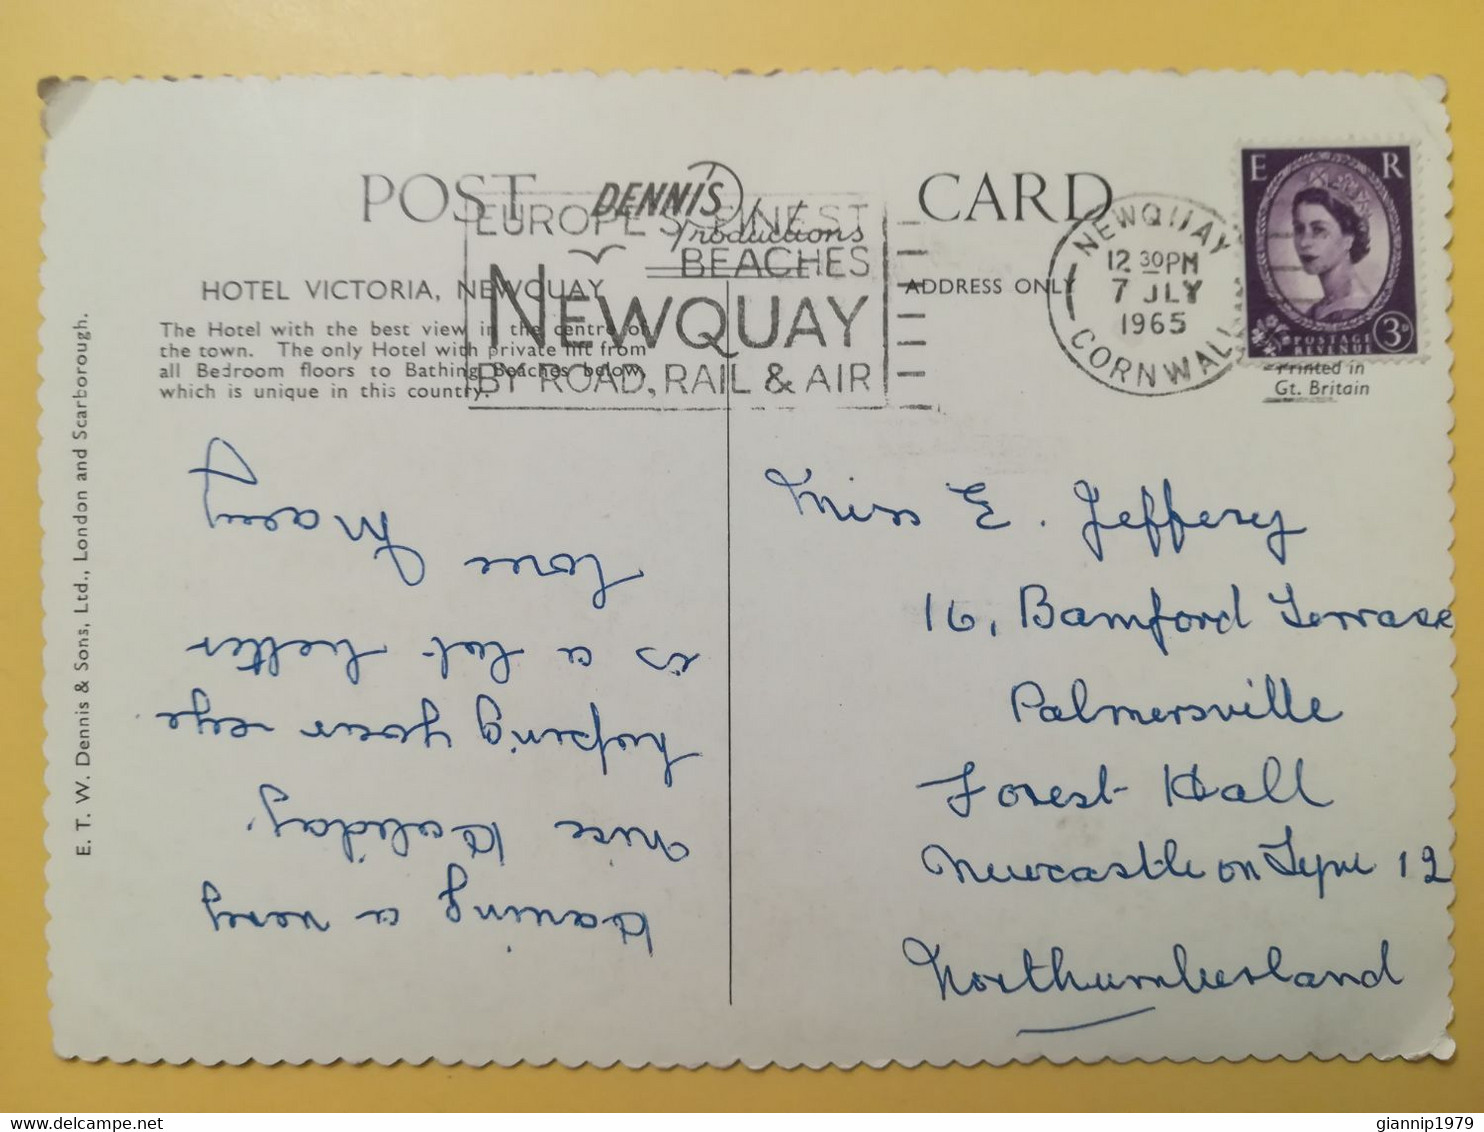 POST CARD
DENNIS
Productions
EUROPE'S FINEST
BEACHES
NEWQUAY
BY ROAD, RAIL & AIR
NEWQUAY
12 30PM
7 JLY
1965
CORNWALL
E R
POSTAGE
REVENUE
3D
HOTEL VICTORIA, NEWQUAY
The Hotel with the best view in the centre of
the town. The only Hotel with private lift from
all Bedroom floors to Bathing Beaches below,
which is unique in this country.
ADDRESS ONLY
Printed in
Gt. Britain
E. T. W. Dennis & Sons, Ltd., London and Scarborough.
Having a very
nice Holiday.
hoping your eye
is a lot better
Love Macey
Miss E. Jeffery
16, Bamford Terrace
Palmersville
Forest Hall
Newcastle on Tyne 12
Northumberland
giannip1979